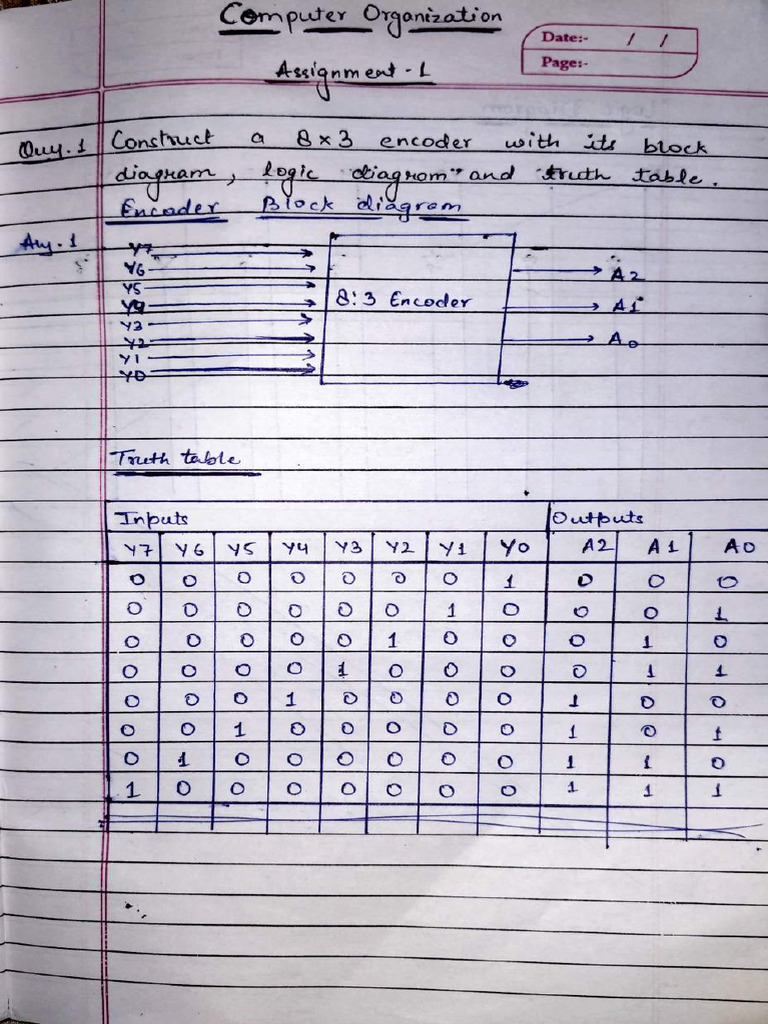 Computer Organization
Date:- / /
Page:-
Assignment - 1
Quy.1 Construct a 8x3 encoder with its block
diagram, logic diagrom" and truth table.
Encoder Block diagram
Any.1
Y7
Y6
Y5
Y4
Y3
Y2
Y1
Y0
8:3 Encoder
A2
A1
A0
Truth table
Inputs Outputs
Y7 Y6 Y5 Y4 Y3 Y2 Y1 Y0 A2 A1 A0
0 0 0 0 0 0 0 1 0 0 0
0 0 0 0 0 0 1 0 0 0 1
0 0 0 0 0 1 0 0 0 1 0
0 0 0 0 1 0 0 0 0 1 1
0 0 0 1 0 0 0 0 1 0 0
0 0 1 0 0 0 0 0 1 0 1
0 1 0 0 0 0 0 0 1 1 0
1 0 0 0 0 0 0 0 1 1 1